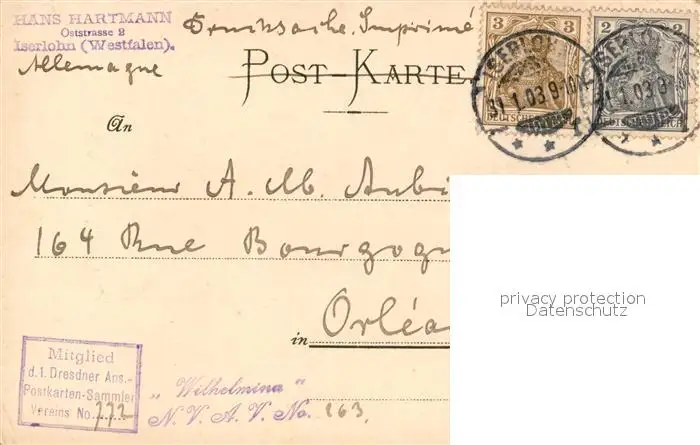 HANS HARTMANN
Oststrasse 2
Iserlohn (Westfalen).
Allemagne
Drucksache. Imprimé
POST-KARTE
3 3
DEUTSCHES
2 2
REICH
ISERLOHN
31.1.03 9-10
ISERLOH
1.03
An
Monsieur A. M. Aubi
164 Rue Bourgogn
in Orléa
privacy protection
Datenschutz
Mitglied
d. 1. Dresdner Ans.-
Postkarten-Sammler
Vereins No. 772
„Wilhelmina"
N. V. A. V. No. 163.